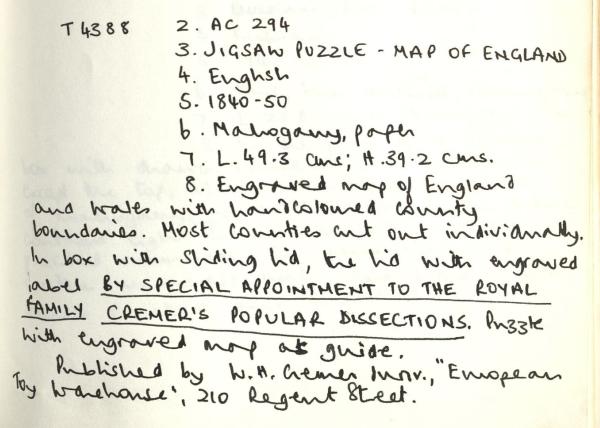 T 4388 2. AC 294
3. JIGSAW PUZZLE - MAP OF ENGLAND
4. English
5. 1840-50
6. Mahogany, paper
7. L. 49.3 cms; H. 39.2 cms.
8. Engraved map of England
and Wales with handcoloured county
boundaries. Most counties cut out individually.
In box with sliding lid, the lid with engraved
label BY SPECIAL APPOINTMENT TO THE ROYAL
FAMILY CREMER'S POPULAR DISSECTIONS. Puzzle
with engraved map as guide.
Published by W.H. Cremer Junr., "European
Toy Warehouse', 210 Regent Street.